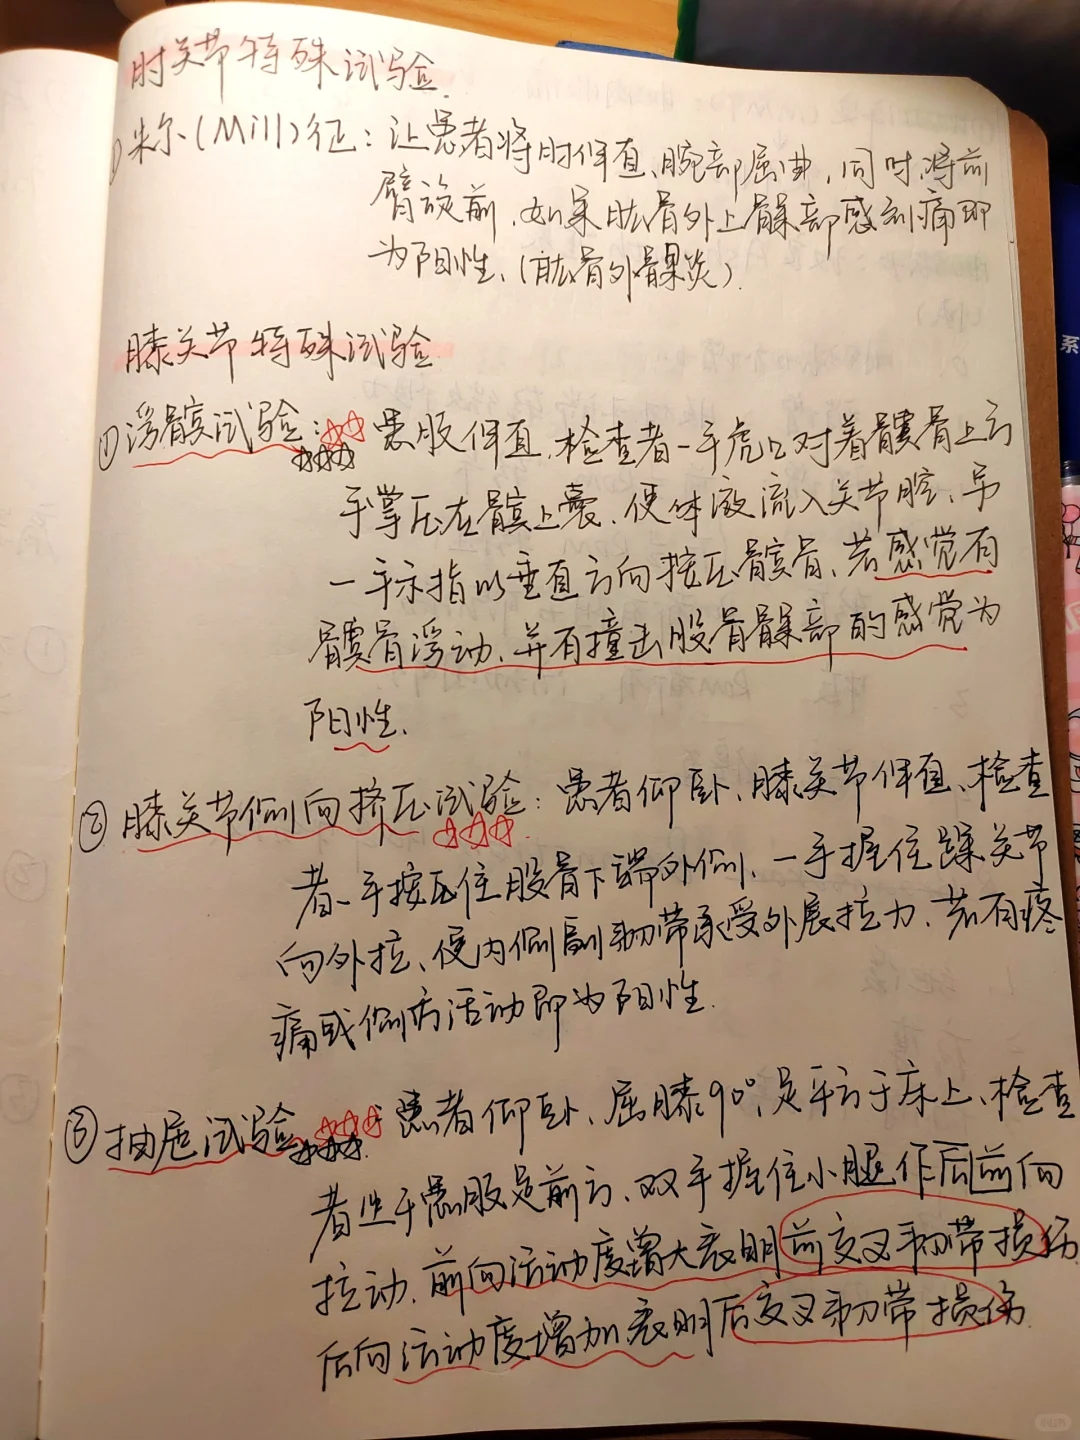 肘关节特殊试验.
①米尔(Mill)征：让患者将肘伸直、腕部屈曲，同时将前
臂旋前，如果肱骨外上髁部感到痛即
为阳性、(肱骨外髁炎).
膝关节特殊试验
①浮髌试验：患肢伸直，检查者一手虎口对着髌骨上方
手掌压在髌上囊、使体液流入关节腔、另
一手示指以垂直方向按压髌骨、若感觉有
髌骨浮动、并有撞击股骨髁部的感觉为
阳性.
②膝关节侧向挤压试验：患者仰卧、膝关节伸直、检查
者一手按压住股骨下端外侧、一手握住踝关节
向外拉、使内侧副韧带承受外展拉力、若有疼
痛或侧方活动即为阳性.
③抽屉试验 患者仰卧、屈膝90°、足平方于床上、检查
者坐于患肢足前方、双手握住小腿作后前向
拉动、前向活动度增大表明前交叉韧带损伤
后向活动度增加表明后交叉韧带损伤
系